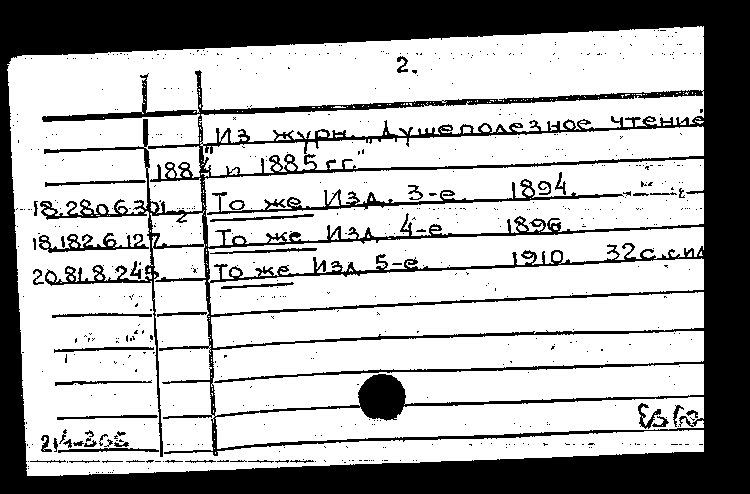 2.
Из журн. „Душеполезное чтение
1884 и 1885 гг."
18.280.6.301 2 То же. Изд. 3-е. 1894.
18.182.6.127. То же Изд 4-е. 1896.
20.81.8.245. То же Изд 5-е. 1910. 32 с. сил